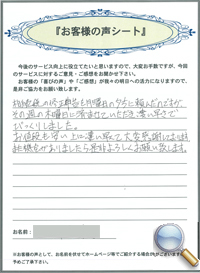 『お客様の声シート』
今後のサービス向上に役立てたいと思いますので、大変お手数ですが、今回
のサービスに対するご意見・ご感想をお聞かせ下さい。
お客様の「喜びの声」や「ご感想」が我々の明日への活力になりますので、
是非ご協力をお願い致します。
の修理を月曜日の夕方に頼んだのですが、
その週の木曜日に済ませていただき速い早さで
びっくりしました。
お値段も安い上に速い対応で大変感謝しております。
また機会がありましたら是非よろしくお願い致します。
お名前：
※お客様の声として、お名前を伏せてホームページ等でご紹介する場合が
予めご了承下さい。